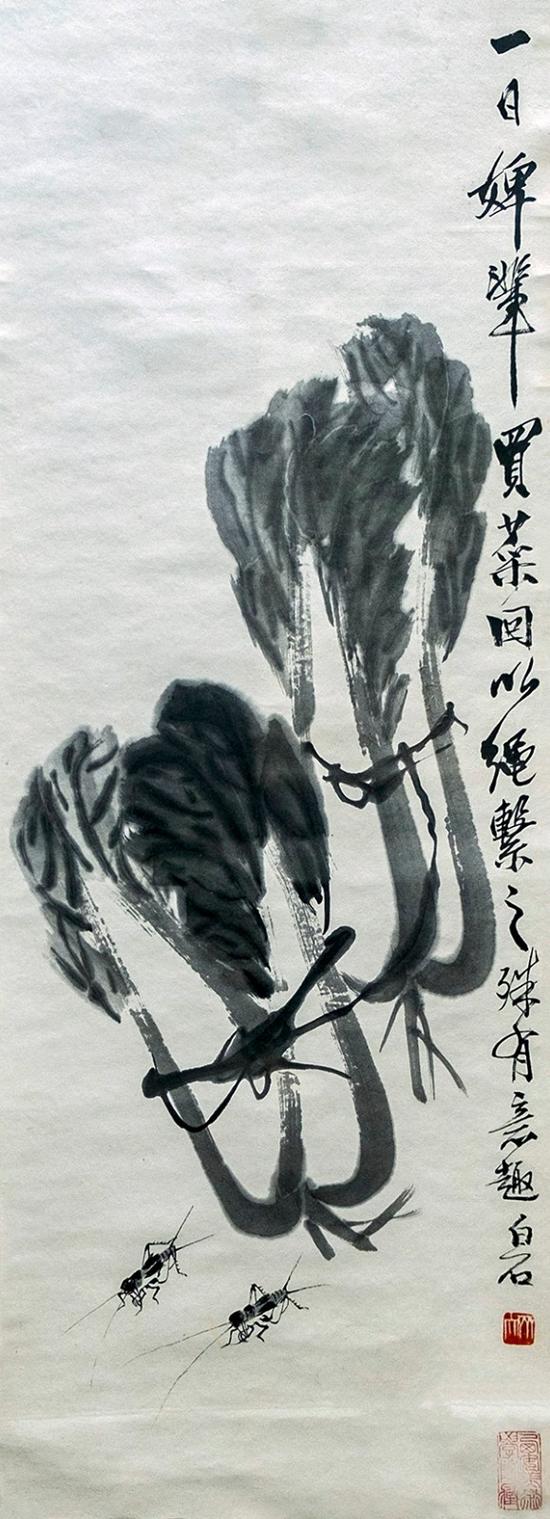 一日婢辈買菜回以繩繫之殊有意趣白石